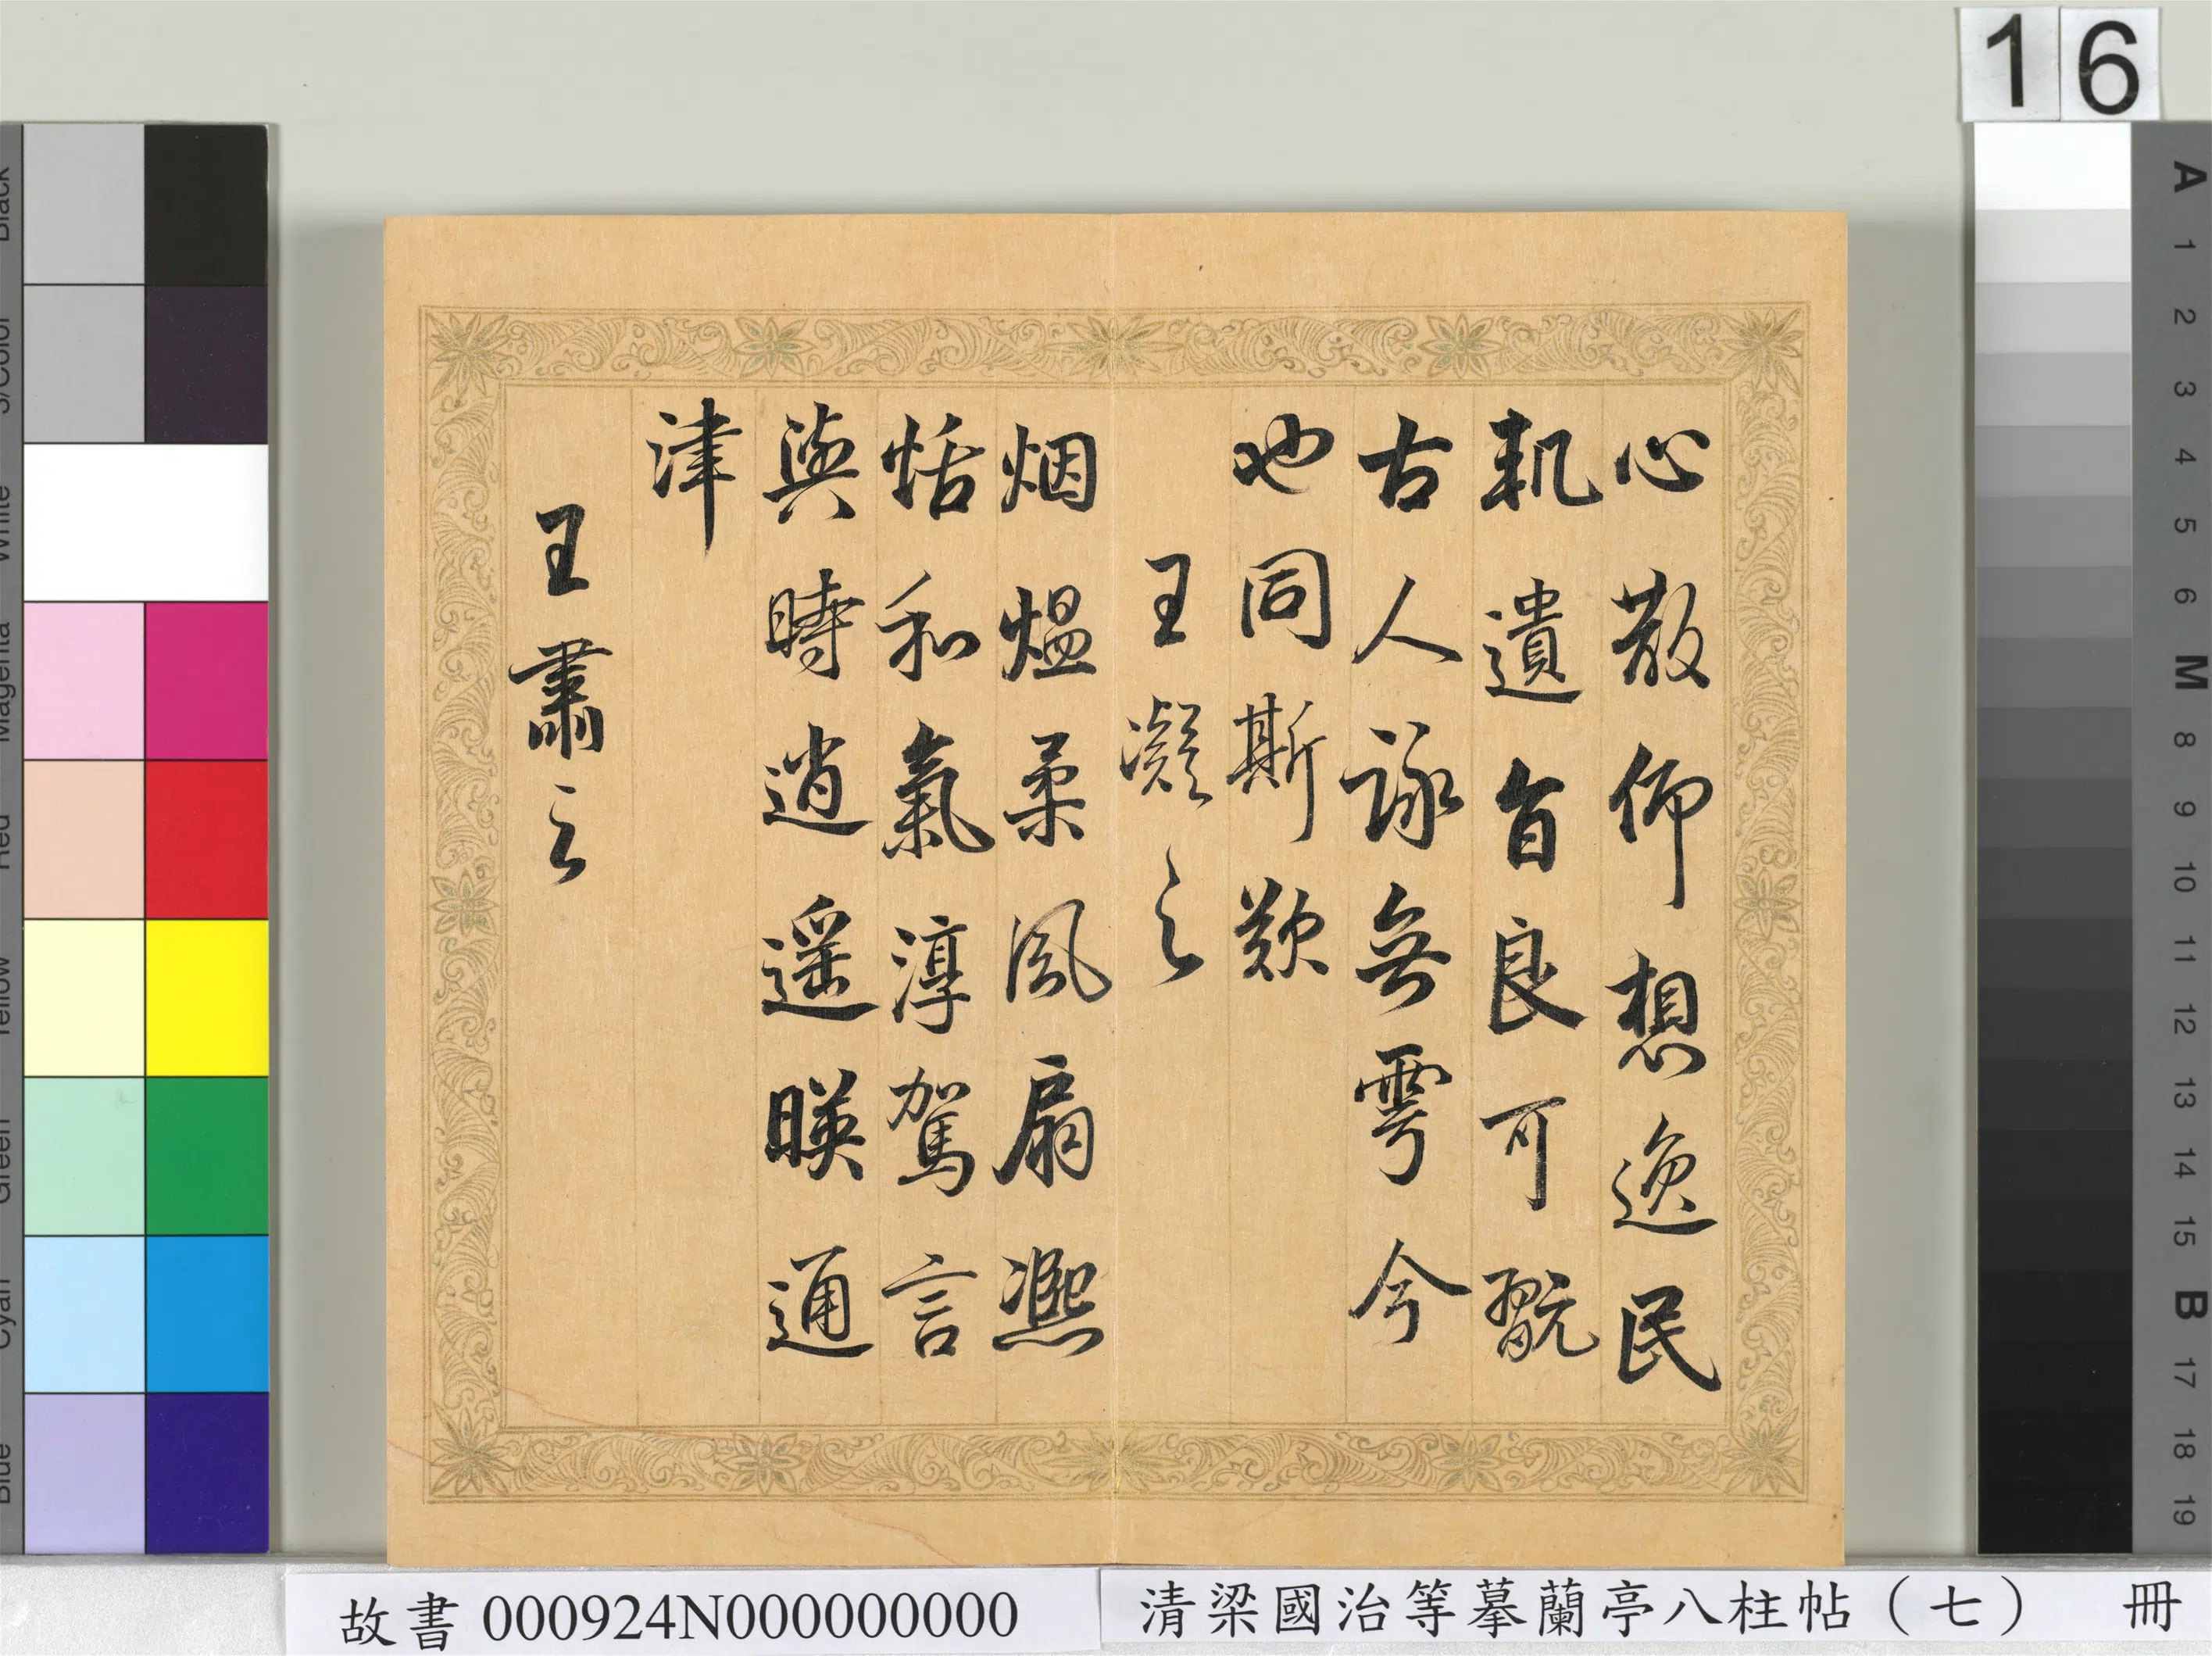 16
心散仰想逸民
軌遺旨良可翫
古人詠舞雩今
也同斯歎
王凝之
烟熅柔風扇凞
恬和氣淳駕言
與時逍遥暎通
津
王肅之
故書 000924N000000000
清梁國治等摹蘭亭八柱帖（七） 冊
Black
3/Color
White
Magenta
Red
Yellow
Green
Cyan
Blue
A 1 2 3 4 5 6 M 8 9 10 11 12 13 14 15 B 17 18 19